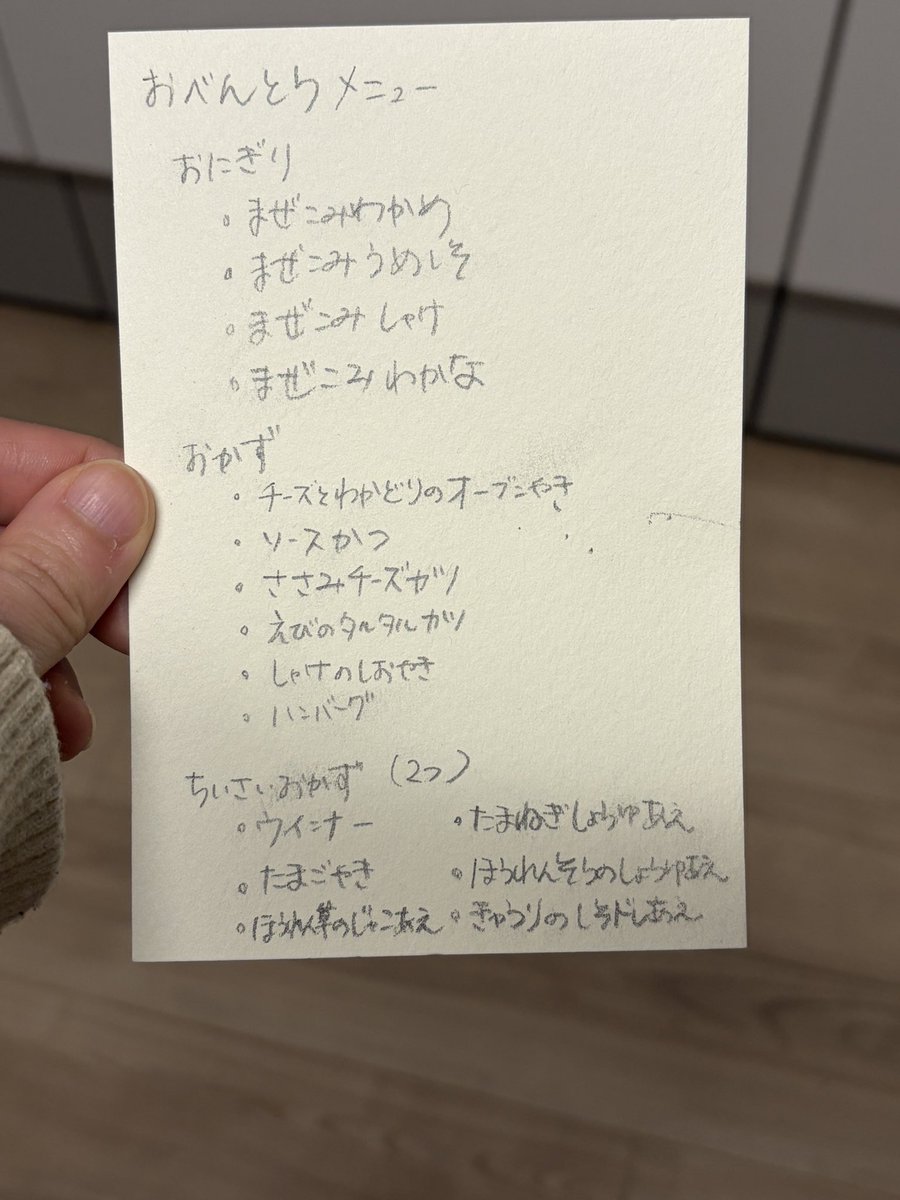 おべんとうメニュー
おにぎり
。まぜこみわかめ
。まぜこみうめしそ
。まぜこみしゃけ
。まぜこみわかな
おかず
。チーズとわかどりのオーブンやき
。ソースかつ
。ささみチーズカツ
。えびのタルタルカツ
。しゃけのしおやき
。ハンバーグ
ちいさいおかず (2つ)
。ウインナー 。たまねぎしょうゆあえ
。たまごやき 。ほうれんそうのしょうゆあえ
。ほうれん草のじゃこあえ 。きゅうりのしろドレあえ